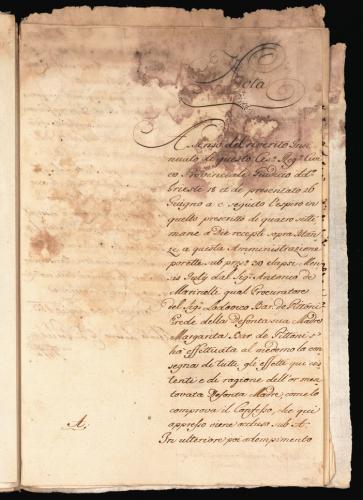 Nota
A senso del riverito Insi
nuato di questo Ces.º Reg.º Civi
co Provinciale Giudicio dd.º
Trieste 18 et de presentato 26
Giugno a c seguito l'espiro in
quello prescritto di quatro setti
mane a Die recepti sopra Istan
ze a questa Amministrazione
porrette sub pres.º 30 elapsi Men
sis July dal Sig.º Antonio de
Marinelli qual Procuratore
del Sig.º Lodovico Bar. de Pittoni
Erede della Defonta sua Madre
Margarita Bar. de Pittoni s'
ha effettuata al medemo la con
segna di tutti gli effetti qui esi
stenti e di ragione dell'or men
tovata Defonta Madre, come lo
comprova il Confesso, che qui
appresso viene acclusо sub A:
A:
In ulteriore poi adempimento